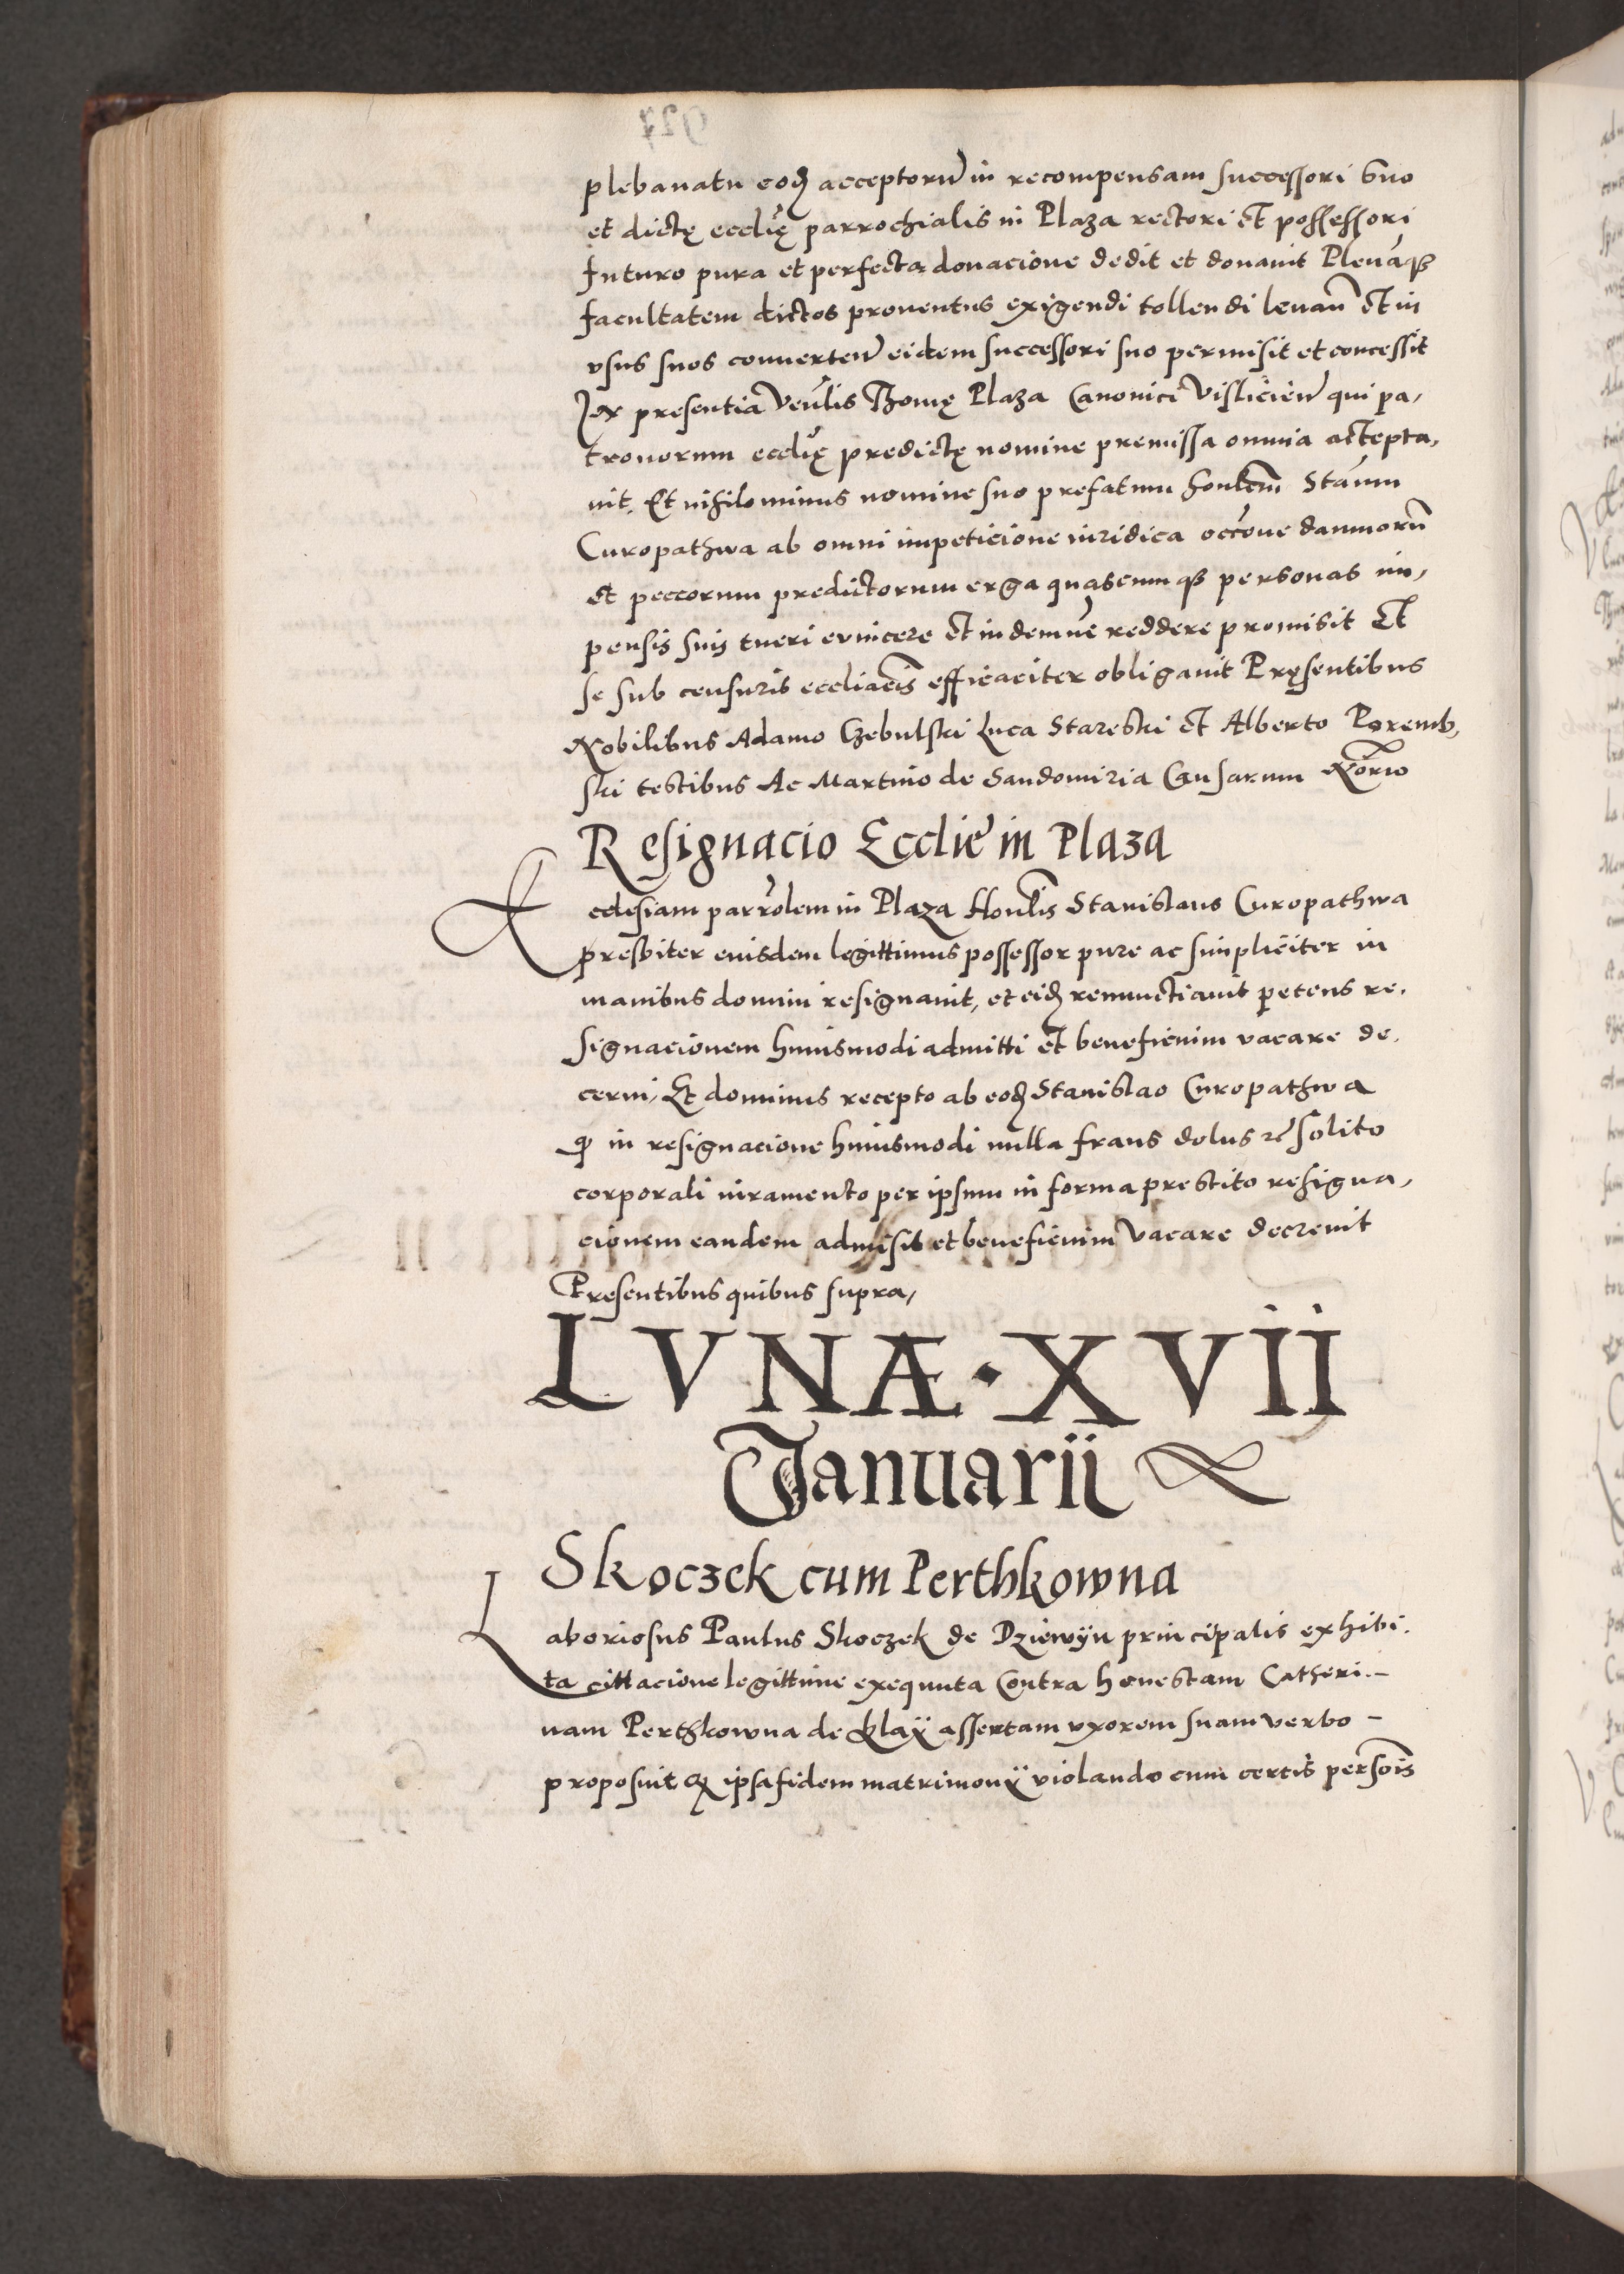 plebanatu eod acceptorũ in recompensam successori suo
et dictę eccłię parrochialis in Plaza rectori et possessori
futuro pura et perfecta donacione dedit et donauit Plenãq₃
facultatem dictos prouentus exigendi tollendi leuan̄ et in
vsus suos conuerten̄ eidem successori suo permisit et concessit
In presentia Veñlis Thomę Plaza Canonici Visliciен̄ qui pa,
tronorum eccłię predictę nomine premissa omnia accepta,
uit. Et nihilominus nomine suo prefatum honlem̄ Stãum
Curopathwa ab omni impeticione iuridica occõne damnorũ
et peccorum predictorum erga quascumq₃ personas im,
pensis suis tueri euincere et indemnē reddere promisit Et
se sub censuris eccliacis̄ efficaciter obligauit Pręsentibus
Nobilibus Adamo Czebulski Luca Stareski et Alberto Poremb,
ski testibus Ac Martino de Sandomiria Causarum Notrio
Resignacio Ecclie in Plaza
Ecclesiam parrolem in Plaza Honlis̄ Stanislaus Curopathwa
presbiter eiusdem legittimus possessor pure ac simpliciter in
manibus domini resignauit, et eid renunctiauit petens re.
signacionem huiusmodi admitti et beneficium vacare de.
cerni, Et dominus recepto ab eod Stanislao Curopathwa
ꝙ in resignacione huiusmodi nulla fraus dolus ꝛc̄ solito
corporali iuramento per ipsum in forma prestito resigna,
cionem eandem admisit et beneficium vacare decreuit
Presentibus quibus supra,
LVNÆ · XVII
Januarii
Skoczek cum Perthkowna
Laboriosus Paulus Skoczek de Dziewÿn principalis exhibi.
ta cittacione legittime exequuta Contra honestam Catheri.–
nam Perthkowna de Klaÿ assertam vxorem suam verbo –
proposuit ꝙ ipsa fidem matrimonÿ violando cum certis persoīs